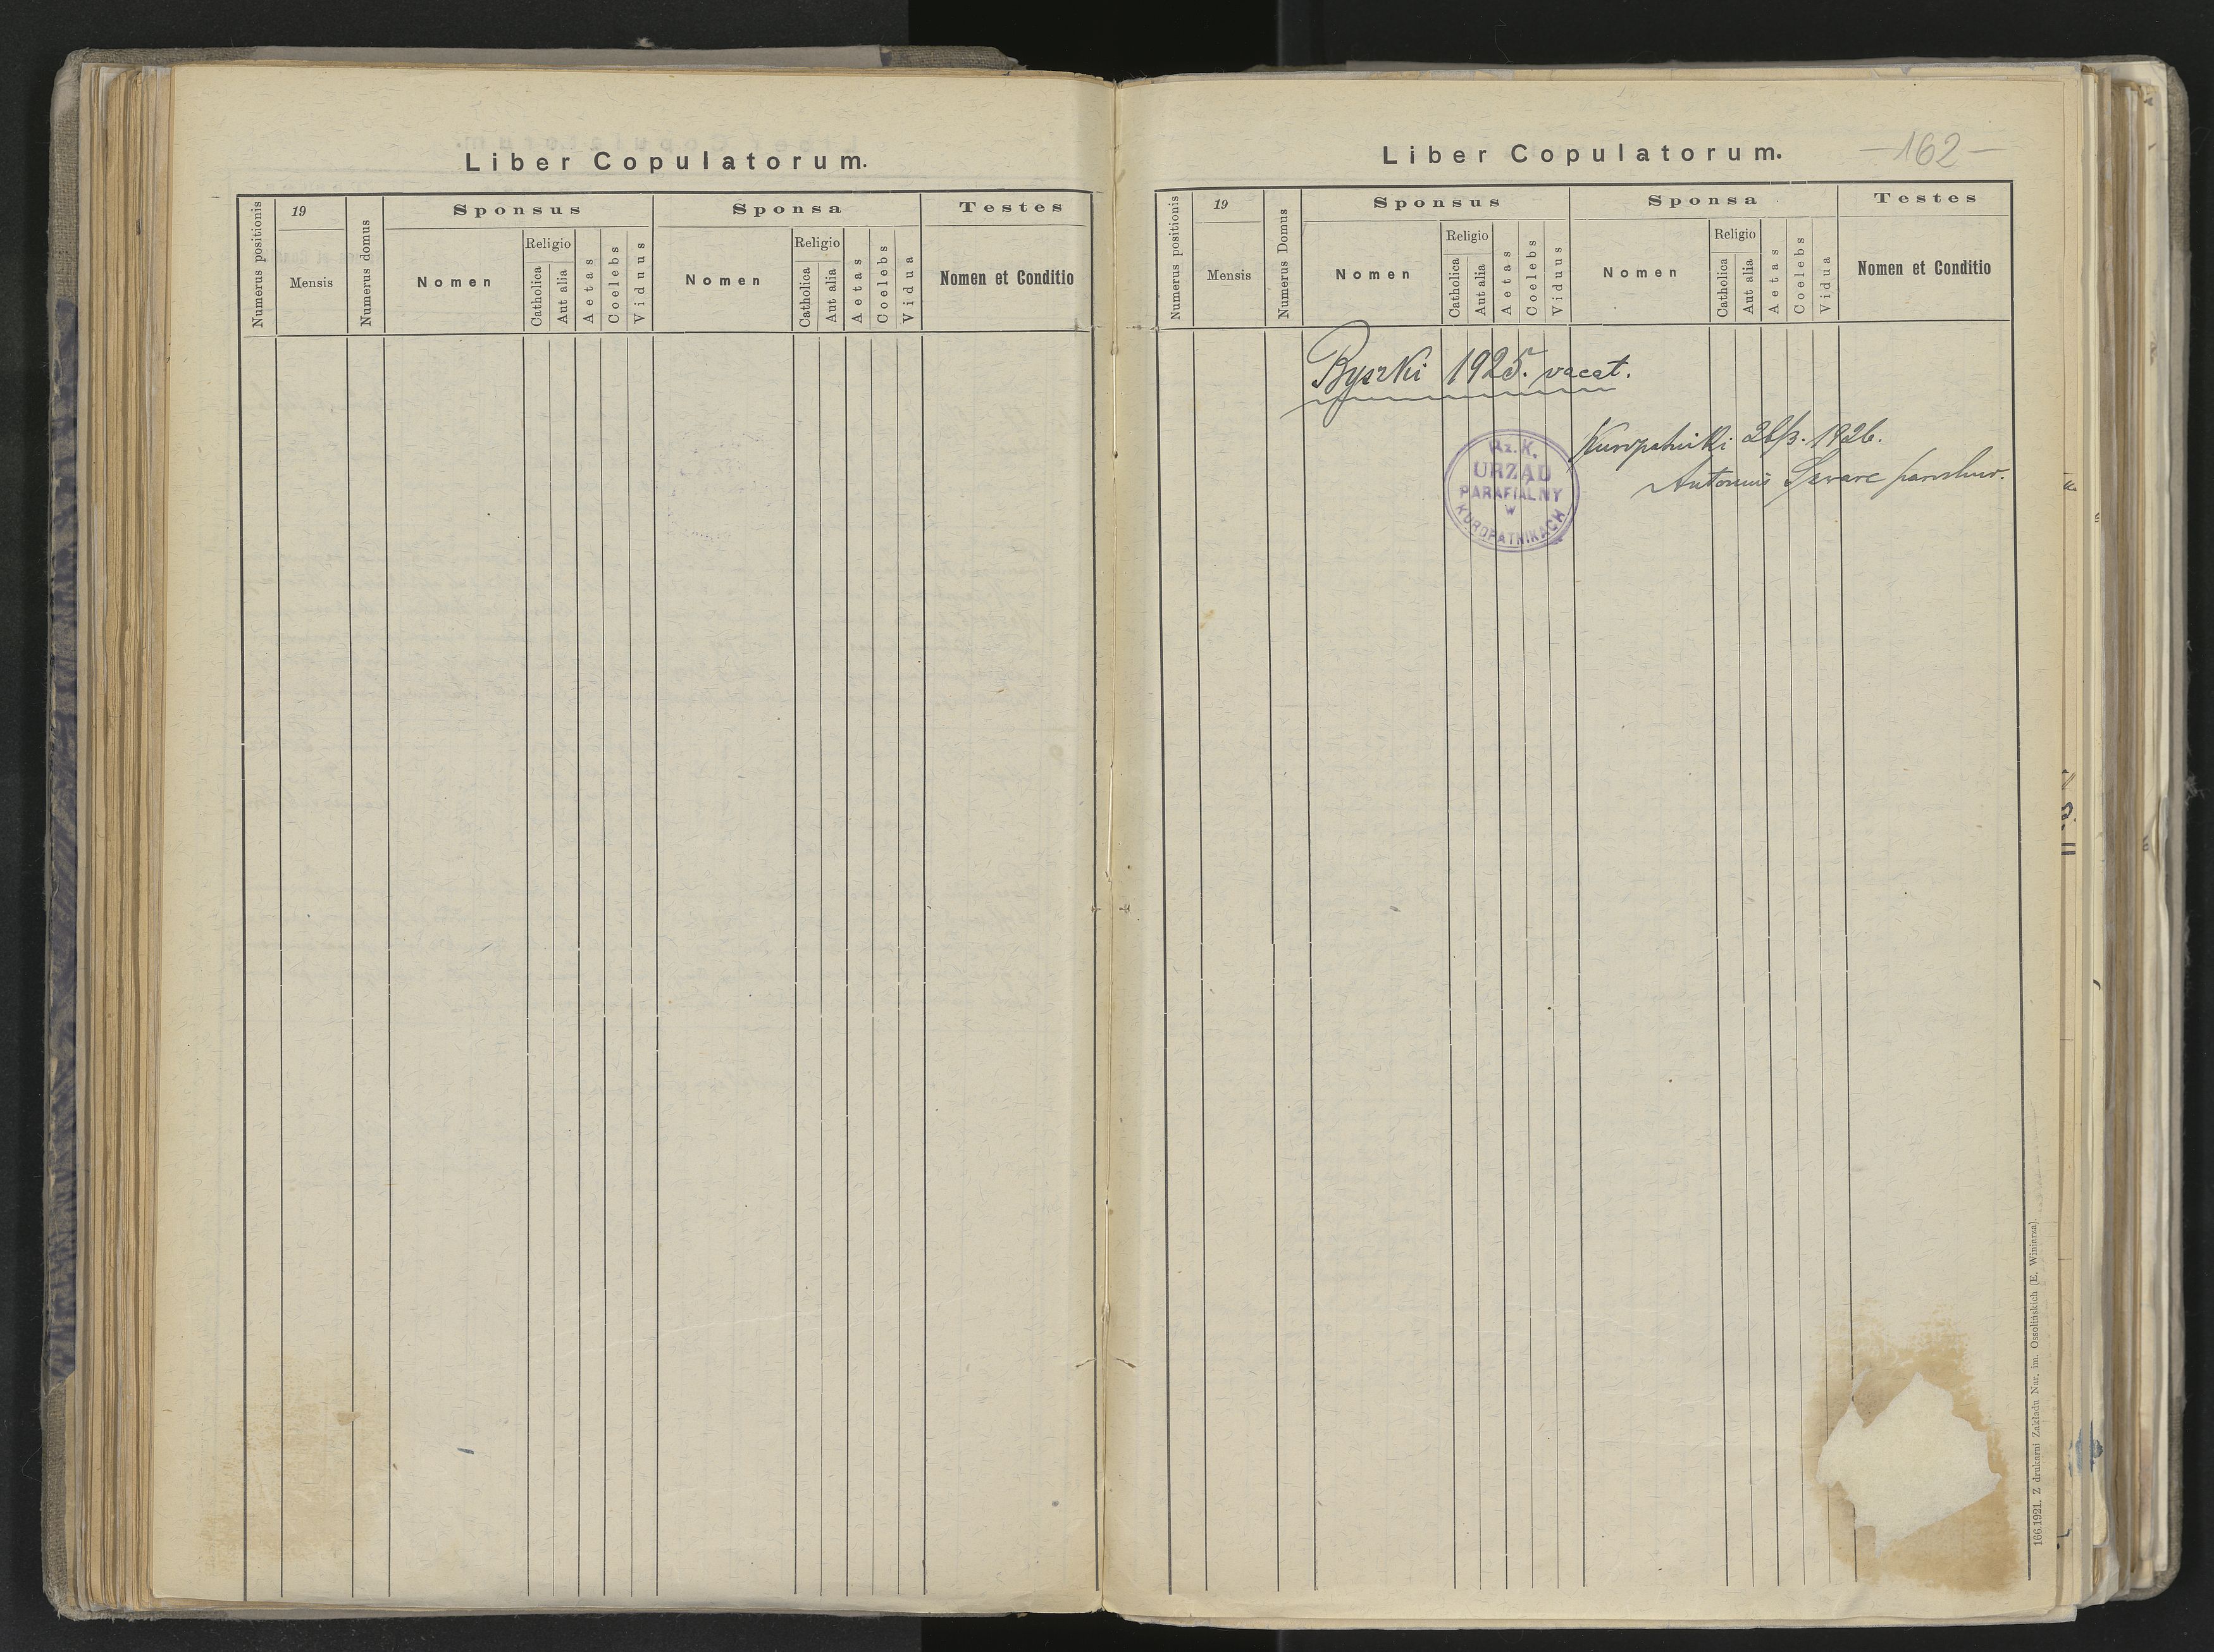 Liber Copulatorum.
Numerus positionis
19
Mensis
Numerus domus
Sponsus
Nomen
Religio
Catholica
Aut alia
Aetas
Coelebs
Viduus
Sponsa
Nomen
Religio
Catholica
Aut alia
Aetas
Coelebs
Vidua
Testes
Nomen et Conditio
Liber Copulatorum.
-162-
Numerus positionis
19
Mensis
Numerus Domus
Sponsus
Nomen
Religio
Catholica
Aut alia
Aetas
Coelebs
Viduus
Sponsa
Nomen
Religio
Catholica
Aut alia
Aetas
Coelebs
Vidua
Testes
Nomen et Conditio
Byszki 1925. vacat.
Kuropatniki 26/3. 1926.
Antonius
Rz. K.
URZĄD
PARAFIALNY
W
KUROPATNIKACH
166.1921. Z drukarni Zakładu Nar. im. Ossolińskich (E. Winiarza).